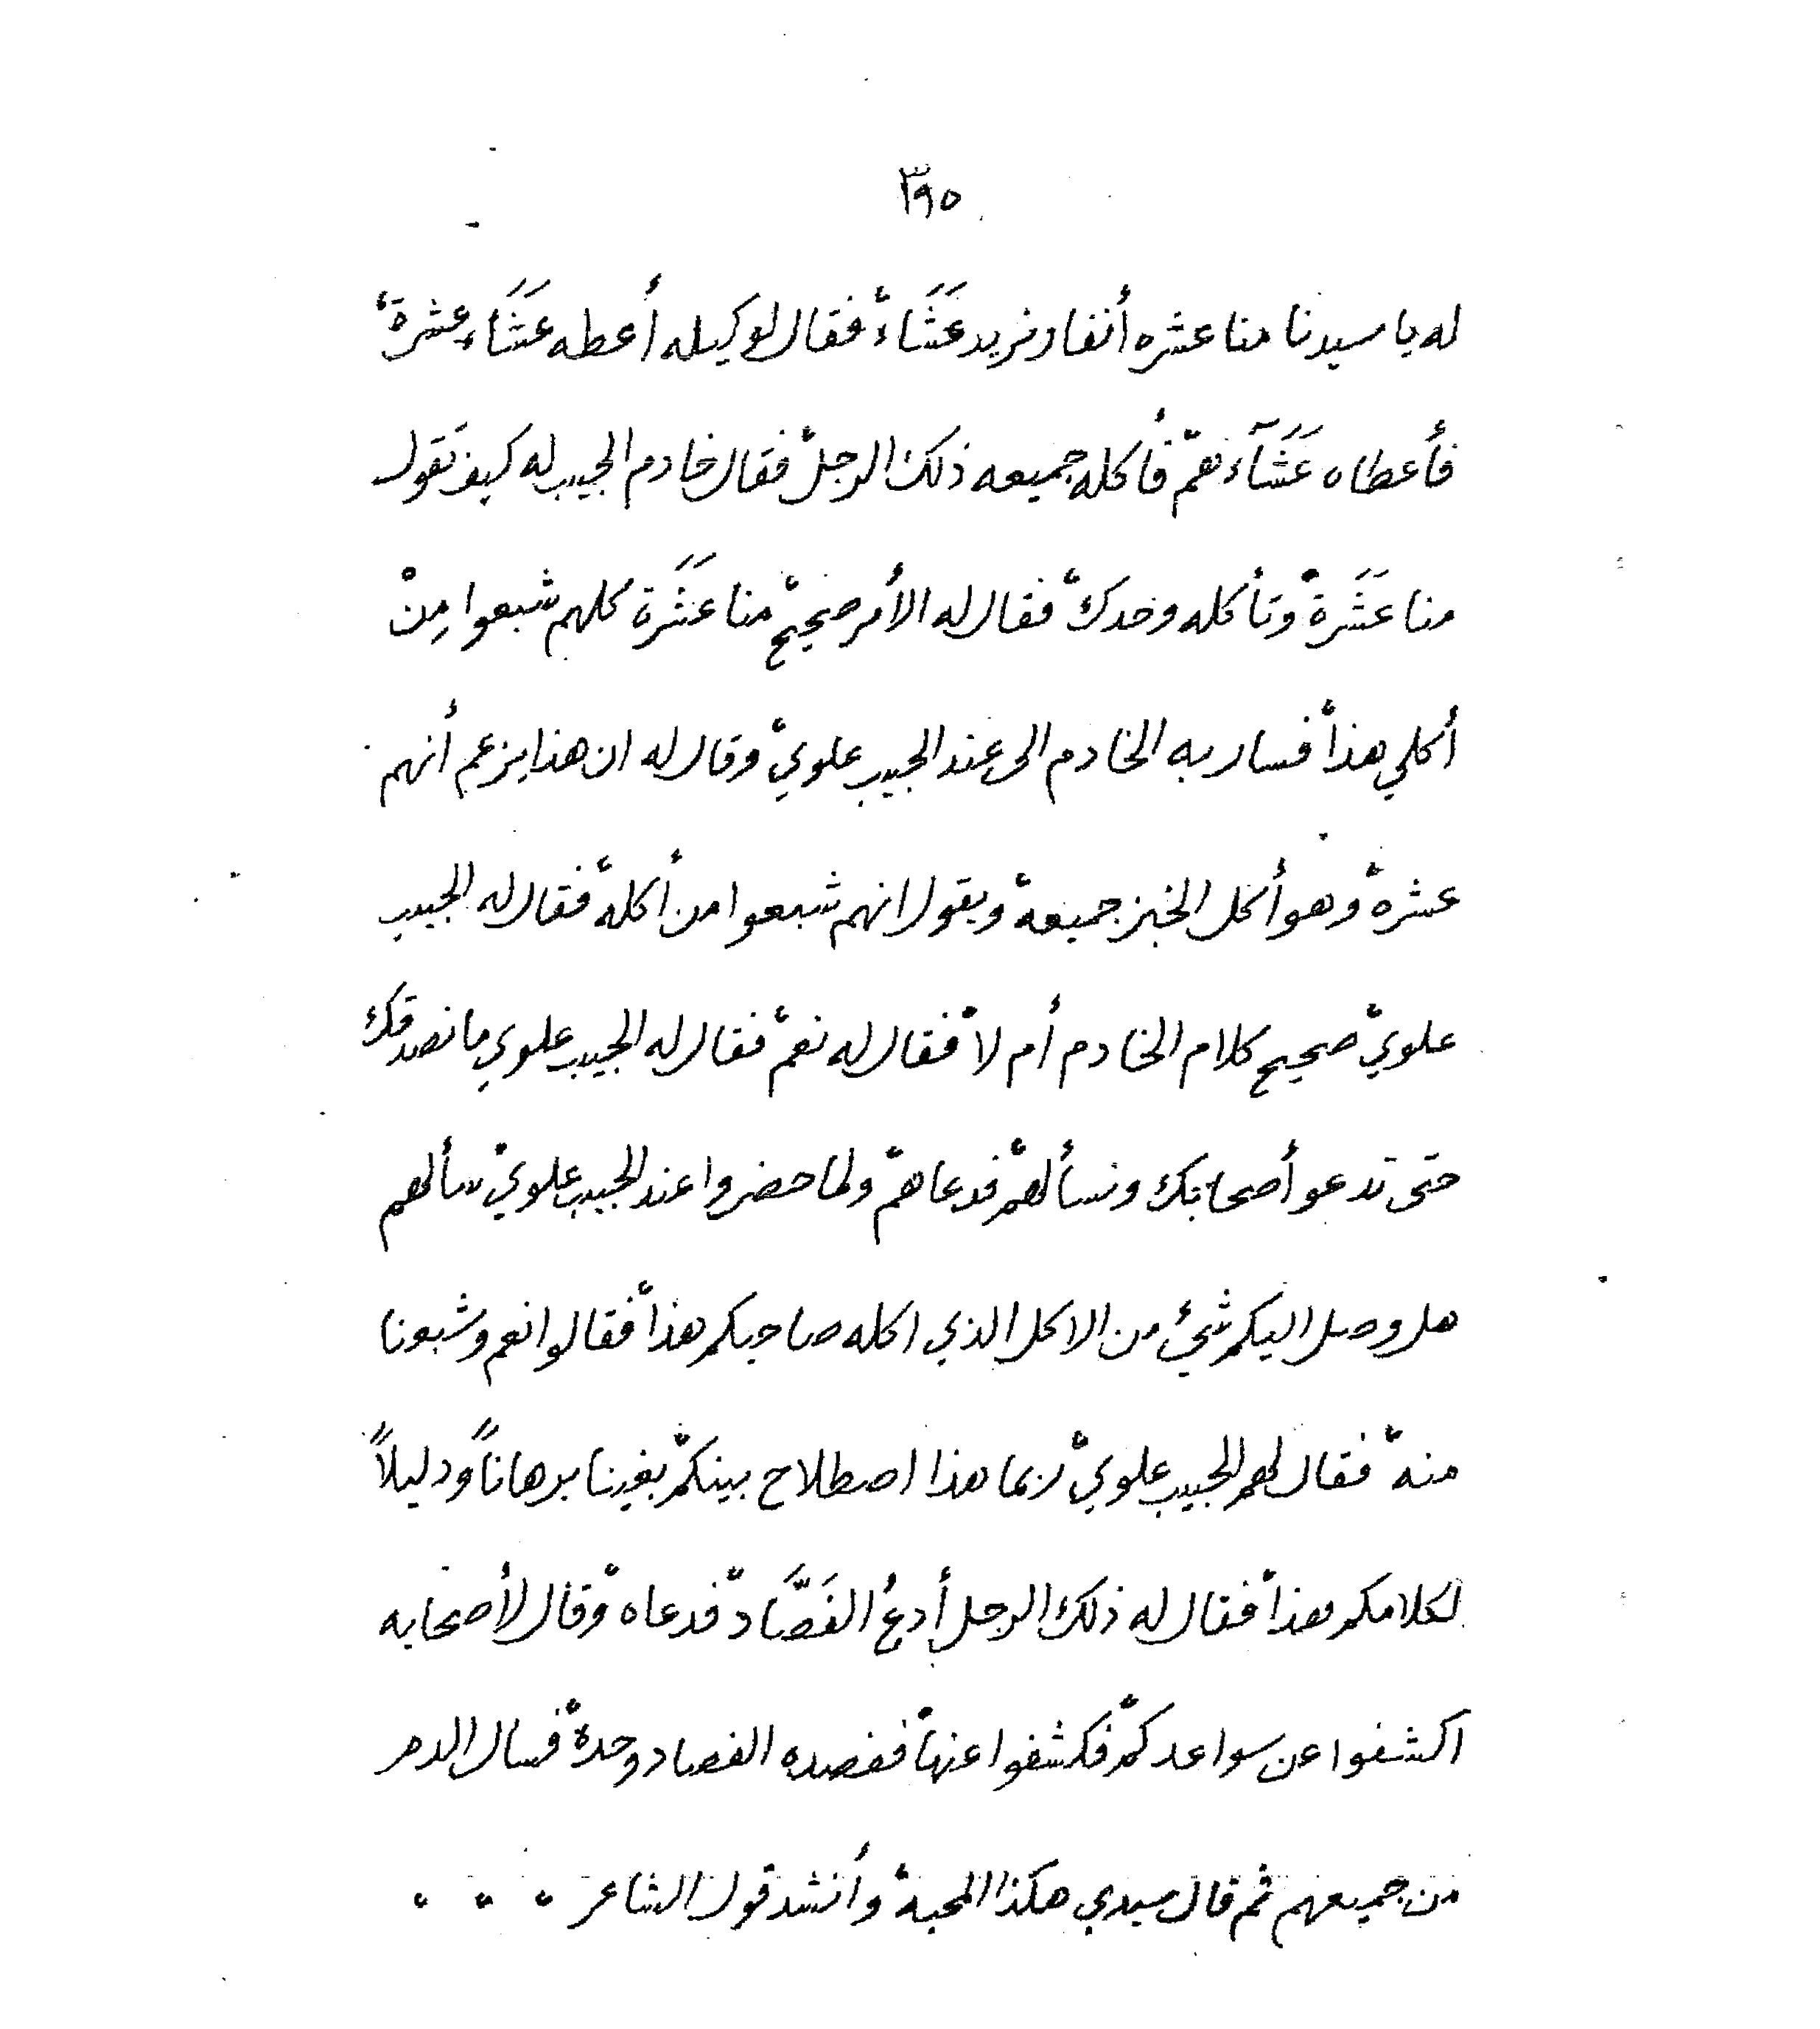 ٣٩٥
له يا سيدنا منا عشره أنفار نريد عَشَاءْ، فقال لوكيله أعطه عَشَاء عشرة،
فأعطاه عَشَآءَهم، فأكله جميعه ذلك الرجل، فقال خادم الحبيب له كيف تقول
منا عَشَرة، وتأكله وحدك، فقال له الأمر صحيح، منا عَشَرة كلهم شبعوا مِنْ
أكلي هذا، فسار به الخادم الى عند الحبيب علوي، وقال له ان هذا يزعم أنهم
عشره، وهو أكل الخبز جميعه، ويقول انهم شبعوا من أكله، فقال له الحبيب
علوي، صحيح كلام الخادم أم لا، فقال له نعم، فقال له الحبيب علوي ما نصدقك
حتى تدعو أصحابك ونسألهم، فدعاهم، ولما حضروا عند الحبيب علوي، سألهم
هل وصل اليكم شيٌ من الاكل الذي اكله صاحبكم هذا، فقالوا نعم وشبعنا
منه، فقال لهم الحبيب علوي، ربما هذا اصطلاح بينكم، بغينا برهاناً ودليلاً
لكلامكم هذا، فقال له ذلك الرجل أدعُ الفَصَّاد، فدعاه، وقال لأصحابه
اكشفوا عن سواعدكم، فكشفوا عنها، ففصده الفصاد وحدة، فسال الدم
من جميعهم ثم قال سيدي هكذا المحبة، وأنشد قول الشاعر ، ، ،